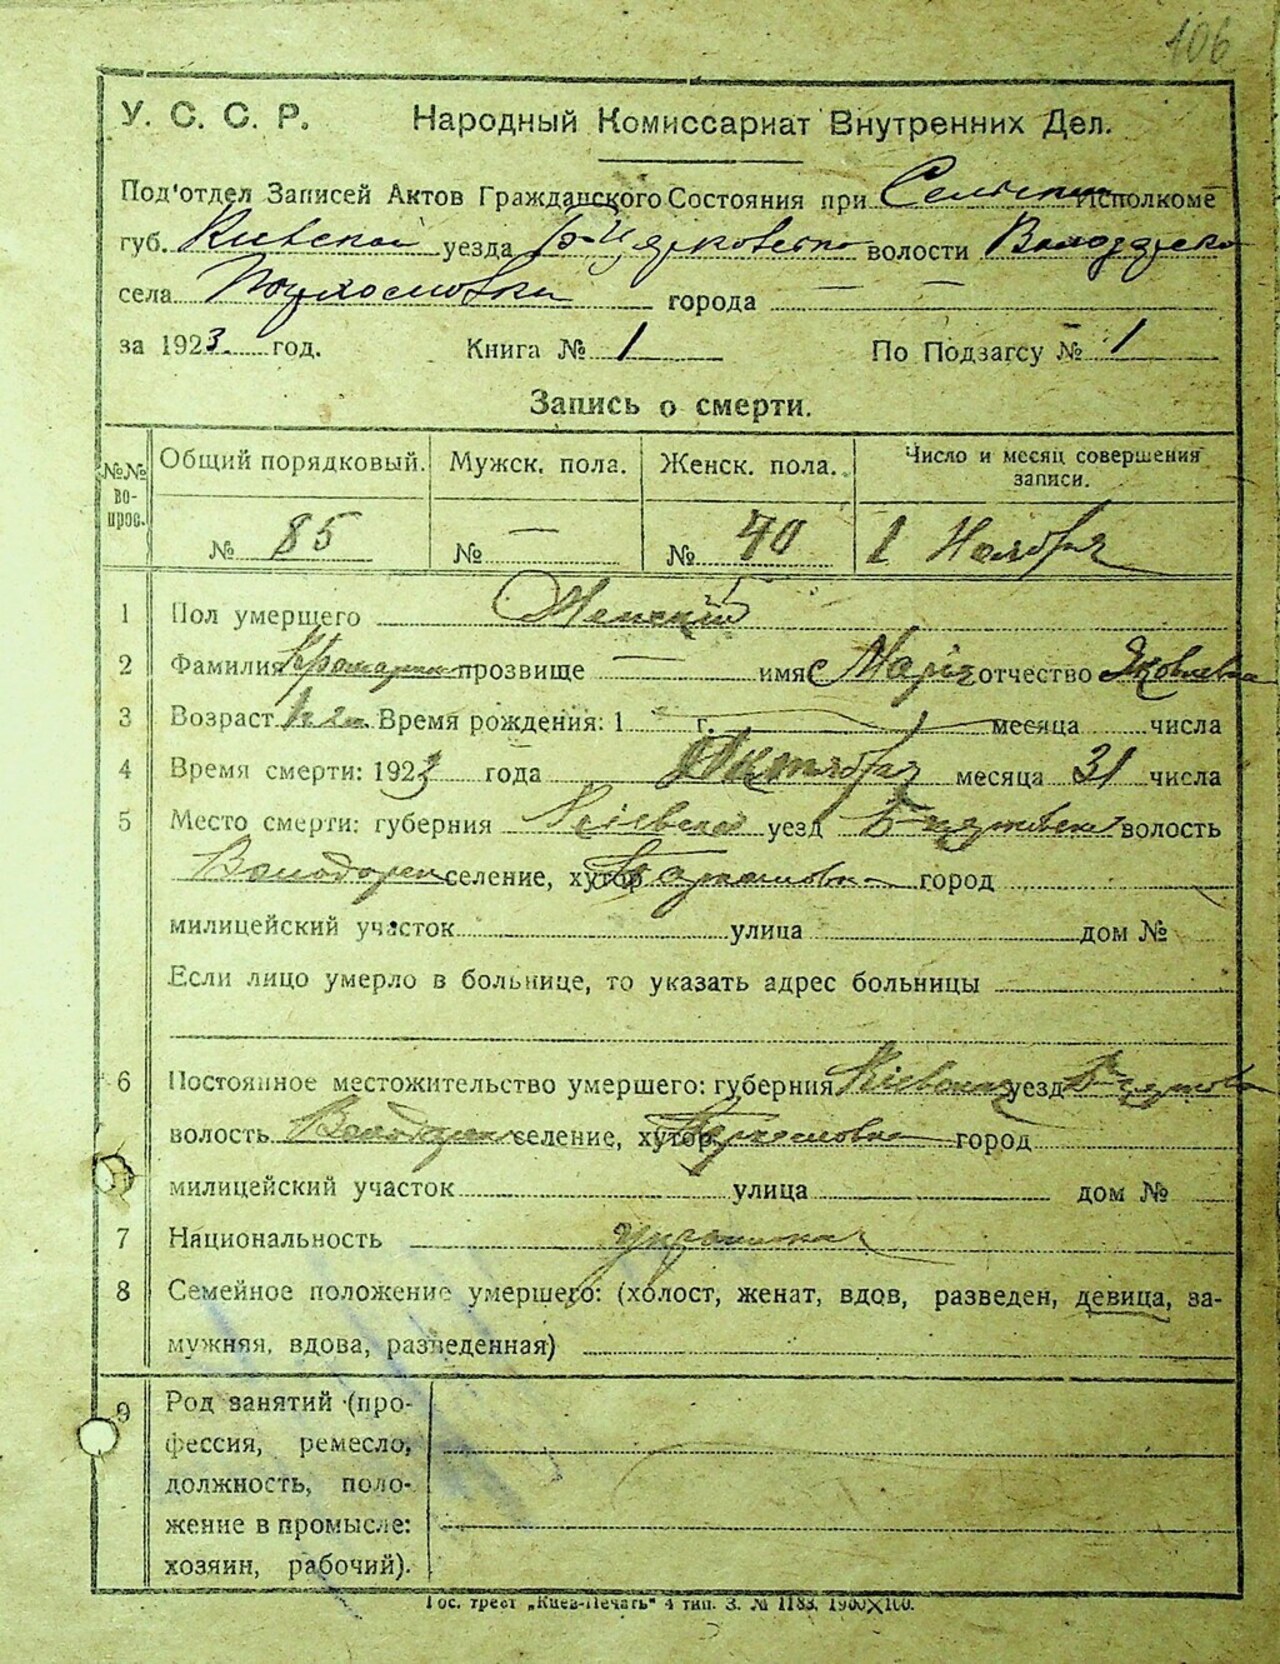 106
У. С. С. Р. Народный Комиссариат Внутренних Дел.
Под'отдел Записей Актов Гражданского Состояния при Сельском Исполкоме
губ. Киевской уезда Б-Церковского волости
села города —
за 1923 год. Книга № 1 По Подзагсу № 1
Запись о смерти.
№№ вопрос. Общий порядковый. Мужск. пола. Женск. пола. Число и месяц совершения записи.
№ 85 № — № 40 1 Ноября
1 Пол умершего Женский
2 Фамилия прозвище — имя Марія отчество Яковлевна
3 Возраст Время рождения: 1 г. месяца числа
4 Время смерти: 1923 года Октября месяца 31 числа
5 Место смерти: губерния Кіевская уезд волость
селение, хутор город
милицейский участок улица дом №
Если лицо умерло в больнице, то указать адрес больницы
6 Постоянное местожительство умершего: губерния Кіевская уезд
волость селение, хутор город
милицейский участок улица дом №
7 Национальность
8 Семейное положение умершего: (холост, женат, вдов, разведен, девица, за-
мужняя, вдова, разведенная)
9 Род занятий (про-
фессия, ремесло,
должность, поло-
жение в промысле:
хозяин, рабочий).
Гос. трест „Киев-Печать" 4 тип. З. № 1183. 1900X100.